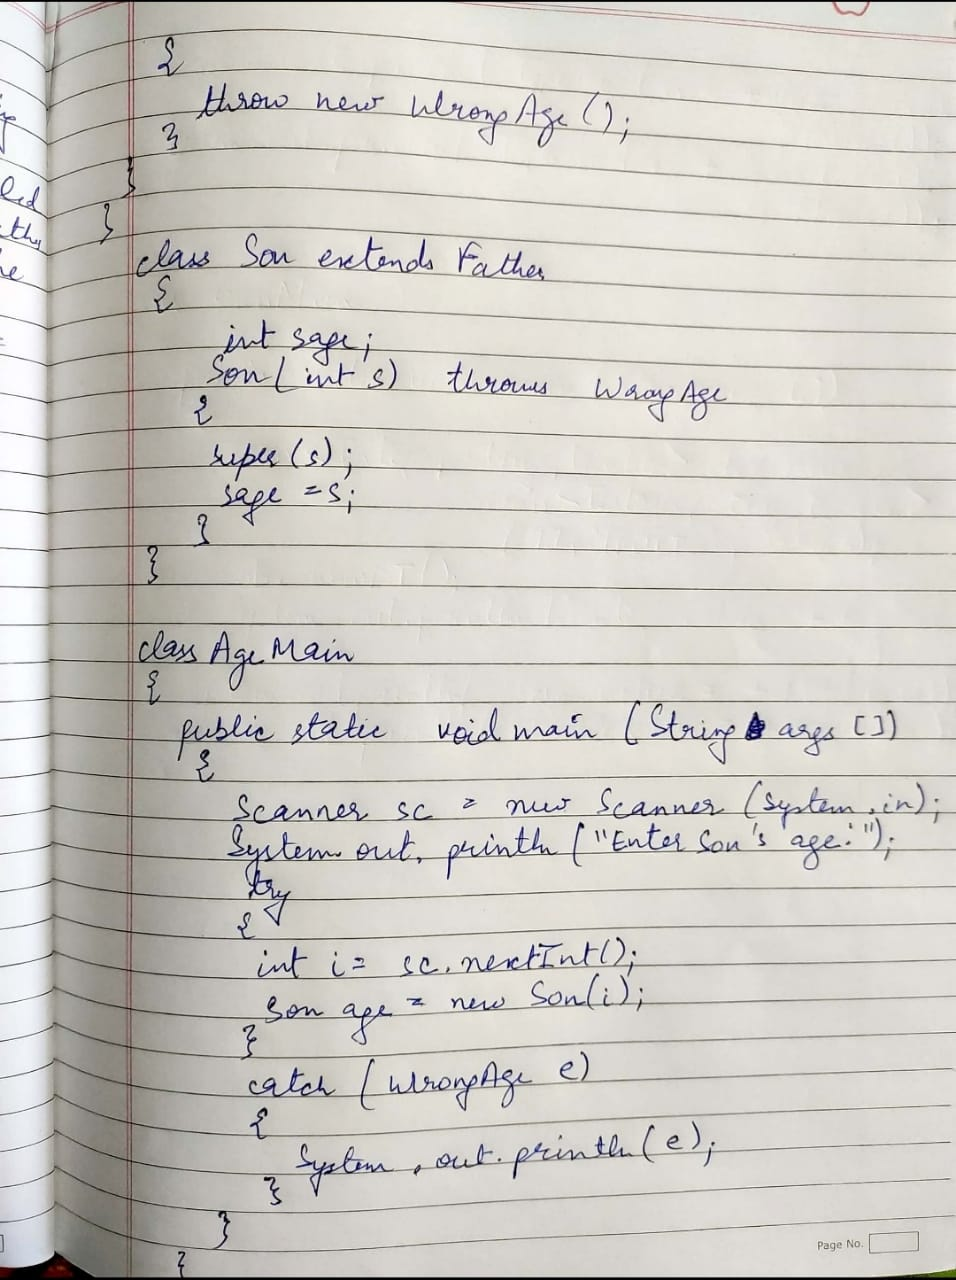 {
throw new WrongAge();
}
}
}
class Son extends Father
{
int sage;
Son(int s) throws WrongAge
{
super(s);
sage = s;
}
}
class AgeMain
{
public static void main (String args [])
{
Scanner sc = new Scanner (System.in);
System.out.println ("Enter Son's age:");
try
{
int i = sc.nextInt();
Son age = new Son(i);
}
catch (WrongAge e)
{
System.out.println(e);
}
}
}
Page No.